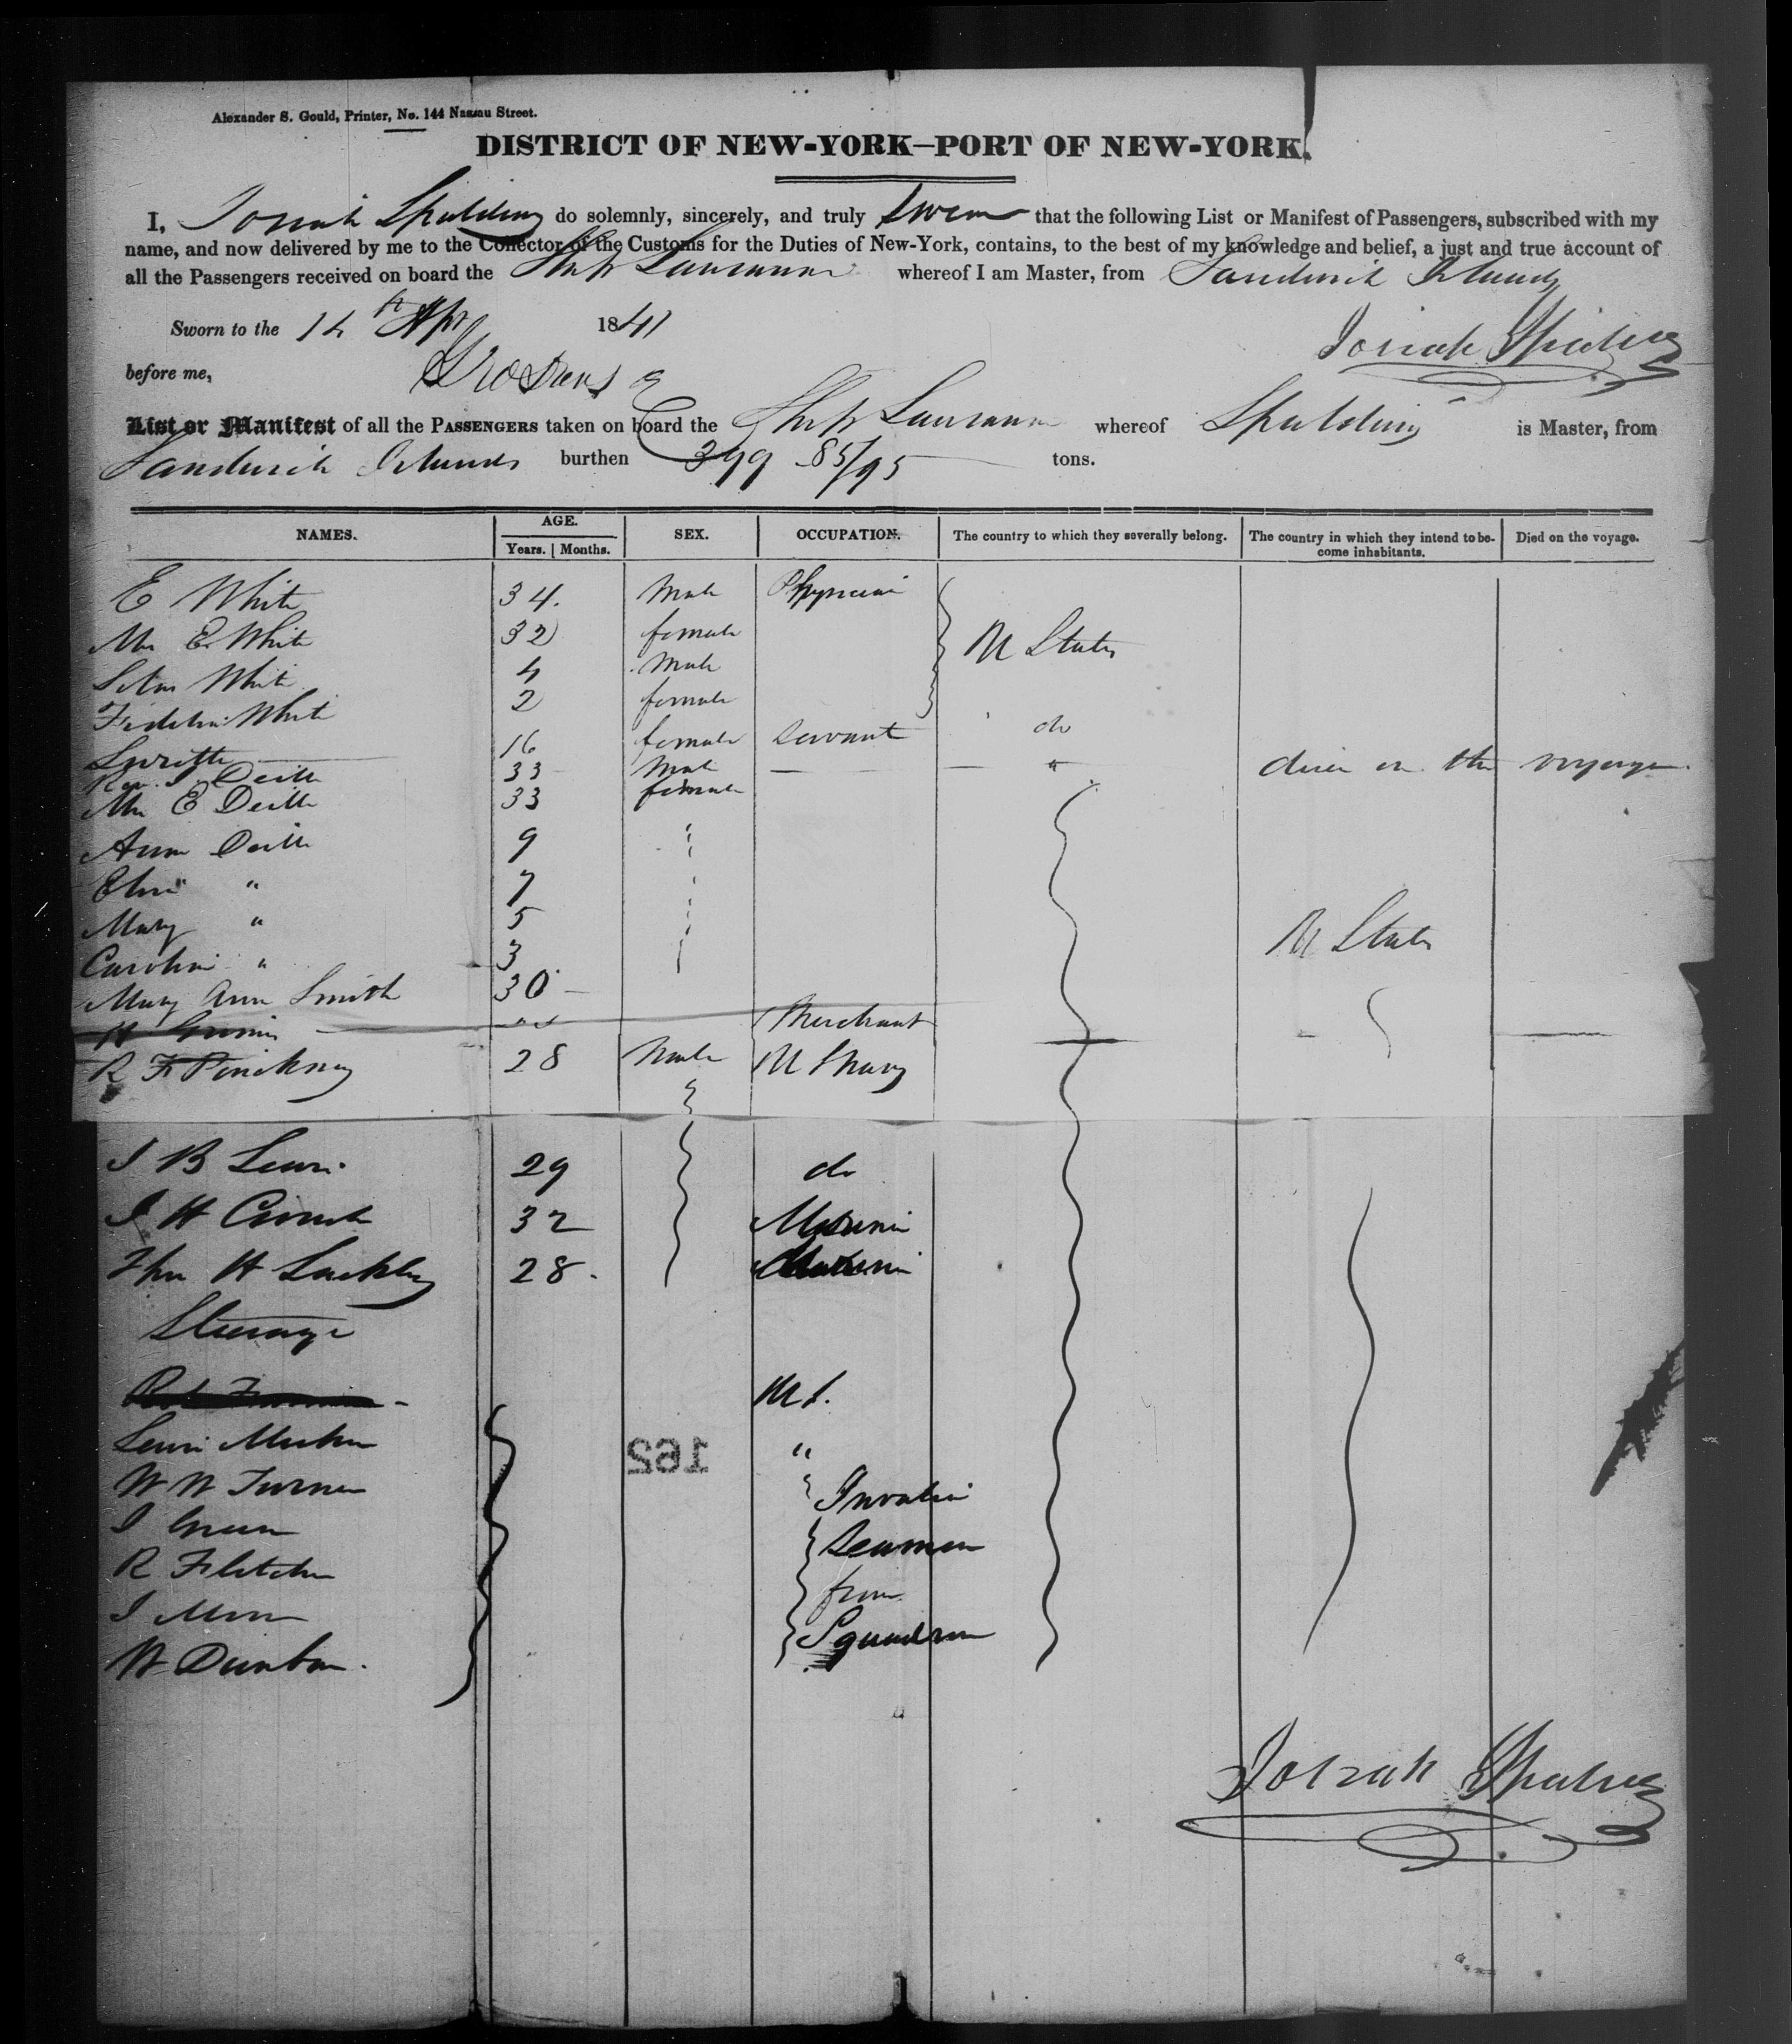 Alexander S. Gould, Printer, No. 144 Nassau Street.
DISTRICT OF NEW-YORK—PORT OF NEW-YORK.
I, Josiah Spalding do solemnly, sincerely, and truly swear that the following List or Manifest of Passengers, subscribed with my
name, and now delivered by me to the Collector of the Customs for the Duties of New-York, contains, to the best of my knowledge and belief, a just and true account of
all the Passengers received on board the Ship Lausanne whereof I am Master, from Sandwich Islands
Sworn to the 14th Apr 1841
Josiah Spalding
before me,
List or Manifest of all the PASSENGERS taken on board the Ship Lausanne whereof Spalding is Master, from
Sandwich Islands burthen 399 85/95 tons.
NAMES. AGE. SEX. OCCUPATION. The country to which they severally belong. The country in which they intend to become inhabitants. Died on the voyage.
Years. Months.
E White 34. Male Physician
Mrs E White 32 female U States
Silas White 4 Male
White 2 female
16 female Servant do
Rev. J. Deill 33 Male died on the voyage
Mrs E Deill 33 female
Ann Deill 9
7
Mary " 5 U States
Caroline " 3
Mary Ann Smith 30
H Merchant
R F Pinckney 28 Male U S Navy
J B Lewis 29 do
J H 32
H 28.
Steerage
U S.
Lewis "
W W Turner Invalid
J Green Seamen
R Fletcher from
J Squadron
W Dunbar.
162
Josiah Spalding